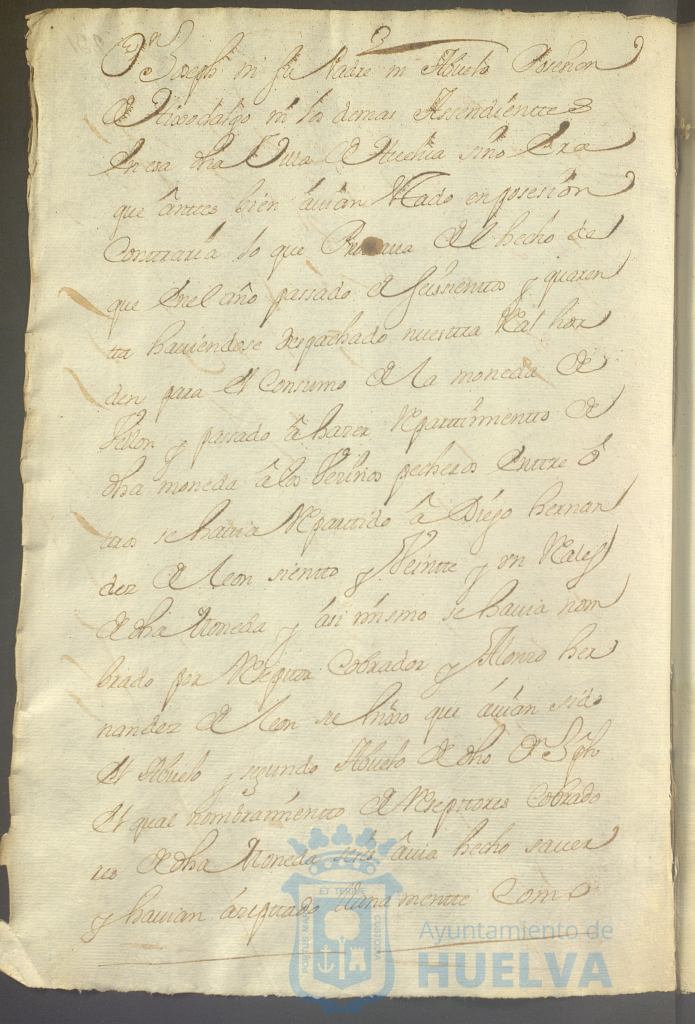 Dn Joseph ni su Padre ni Abuelo Poseñon
de Hixodalgo ni los demas Assendientes
En esa dha Villa de Huelua sino Era
que ântes bien âuian estado en posesion
Contraria lo que Prouaua El hecho de
que Enel año passado de seisientos y quaren
ta hauiendose despachado nuestra Real hor
den para El Consumo de la moneda de
Vellon y passado â hazer Repartimiento de
dha moneda â los Vezinos pecheros Entre ô
tros se hauia Repartido â Diego hernan
dez de Leon siento y Veinte y un Reales
de dha Moneda y ási mismo se hauia nom
brado por Reseptor Cobrador y Alonso her
nandez de Leon su hixo que âuian sido
El Abuelo y segundo Abuelo de dho Dn Jph
El qual nombramiento de Reseptores Cobrado
res de dha Moneda se les âuia hecho sauer
y hauian âseptado llanamente Como
ET TERRAE
PORTUS MARIS
CUSTODIA
Ayuntamiento de
HUELVA